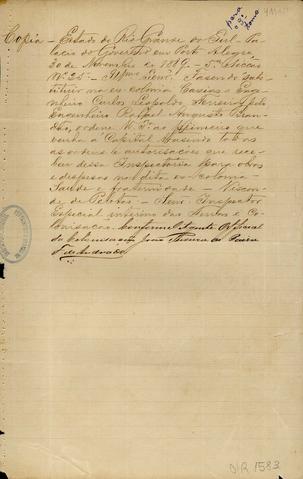 Copia - Estado do Rio Grande do Sul - Pa-
lacio do Governo em Porto Alegre
30 de Novembro de 1889 - 5ª Secção
Nº 25 - Illmo Senr. Fazendo subs-
tituir na ex-colonia Caxias o Enge-
nheiro Carlos Leopoldo pelo
Engenheiro Rafael Augusto Bran-
dão, ordene V. Sª ao primeiro que
venha á Capital trazendo todas
as ordens e autorisações que rece-
beu dessa Inspectoria para obras
e despezas na dita ex-colonia -
Saude e fraternidade - Viscon-
de de Pelotas - Senr. Inspector
Especial interino das Terras e Co-
lonisação. Conforme. Official
da Colonisação João
de Andrade
DR 1583